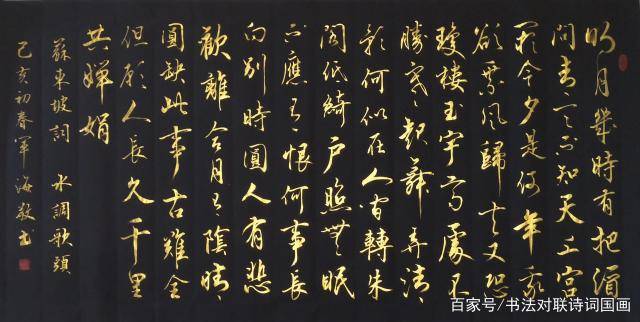 明月幾時有把酒
問青天不知天上宮
闕今夕是何年我
欲乘風歸去又恐
瓊樓玉宇高處不
勝寒起舞弄清
影何似在人間轉朱
閣低綺戶照無眠
不應有恨何事長
向別時圓人有悲
歡離合月有陰晴
圓缺此事古難全
但願人長久千里
共嬋娟
蘇東坡詞 水調歌頭
己亥初春軍海敬書
百家号/书法对联诗词国画